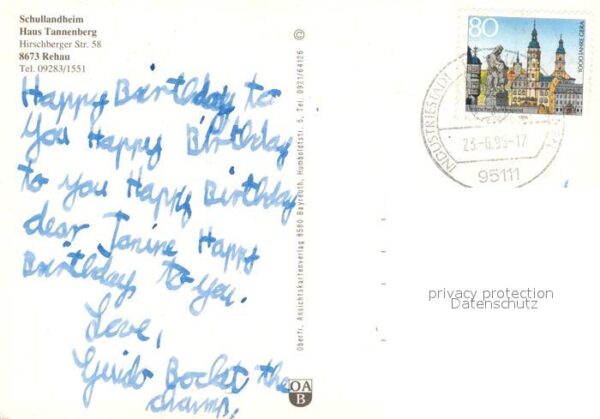 Schullandheim
Haus Tannenberg
Hirschberger Str. 58
8673 Rehau
Tel. 09283/1551
Happy Birthday to
You Happy Birthday
to you Happy Birthday
dear Janine Happy
Birthday to You.
Love,
Guido the
champ.
©
Obertr. Ansichtskartenverlag 8580 Bayreuth, Humboldtstr. 5, Tel. 0921/64126
OA
B
80
1000 JAHRE GERA
INDUSTRIESTADT
23.-6.95-17
95111
privacy protection
Datenschutz